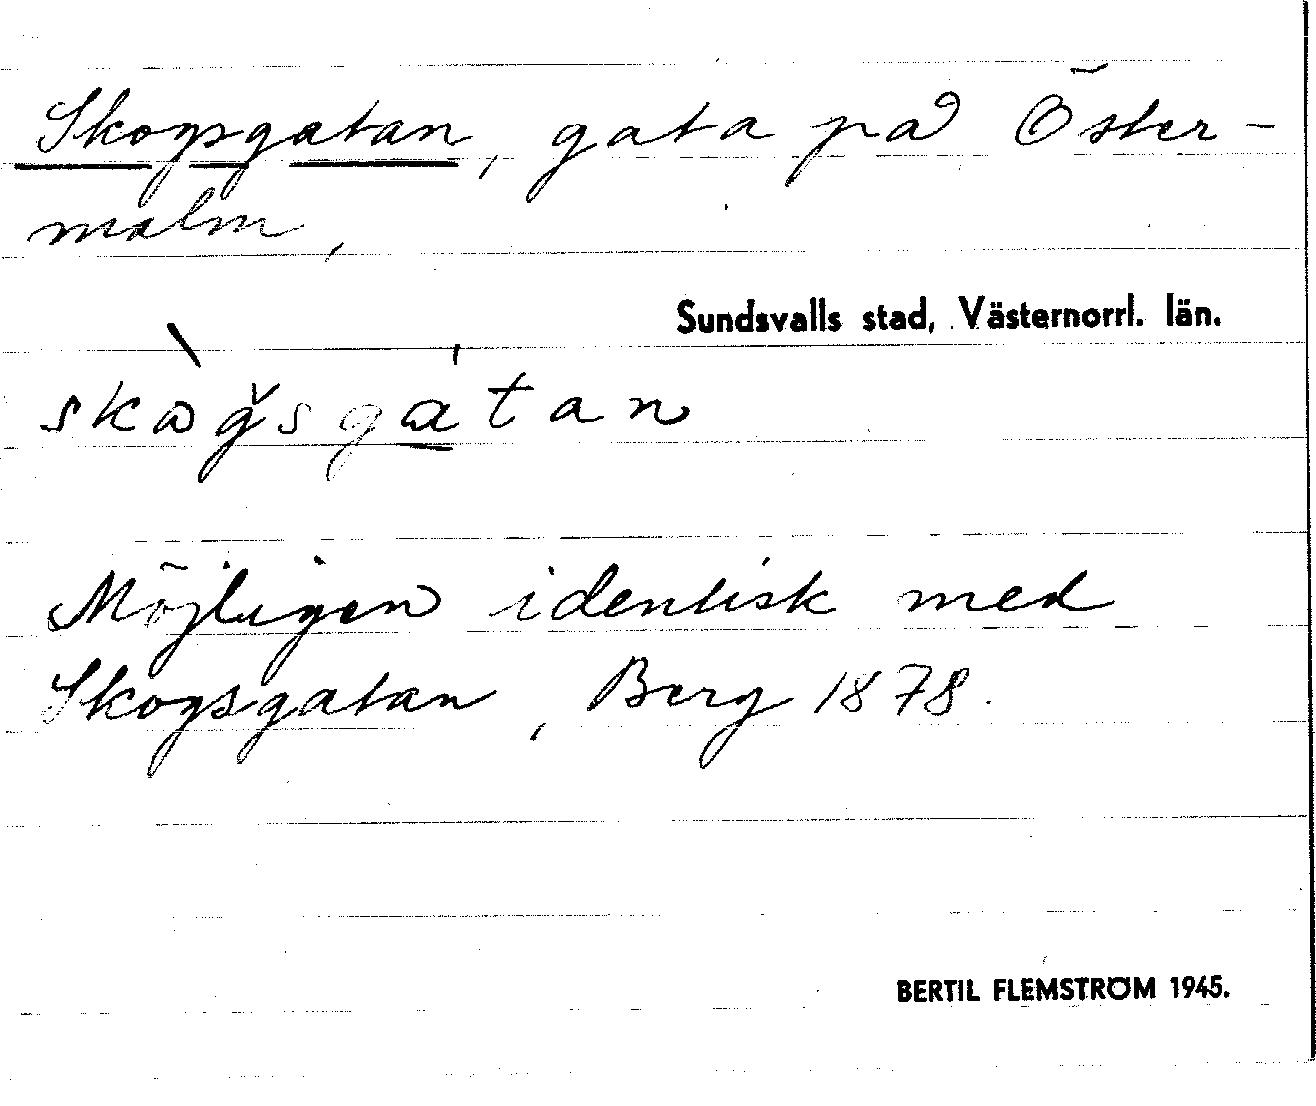 Skogsgatan, gata på Öster-
malm,
Sundsvalls stad, Västernorrl. län.
skògsgátan
Möjligen identisk med
Skogsgatan, Berg 1878.
BERTIL FLEMSTRÖM 1945.